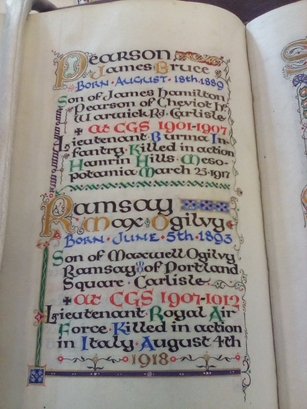 Pearson
James Bruce
Born · August · 18th · 1889
Son of James Hamilton
Pearson of Cheviot H
Warwick Rd. Carlisle
+ at CGS 1901-1907
Lieutenant · Burma In-
fantry. Killed in action
Hamrin Hills · Meso-
potamia · March 25 · 1917
Ramsay
Max · Ogilvy
Born · June · 5th · 1893
Son of Maxwell Ogilvy
Ramsay of Portland
Square · Carlisle ·
+ at CGS 1907-1912
Lieutenant Royal Air
Force · Killed in action
in Italy · August 4th
1918